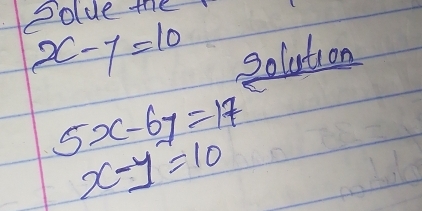 Solve the
x - y = 10
Solution
5x - 6y = 17
x - y = 10